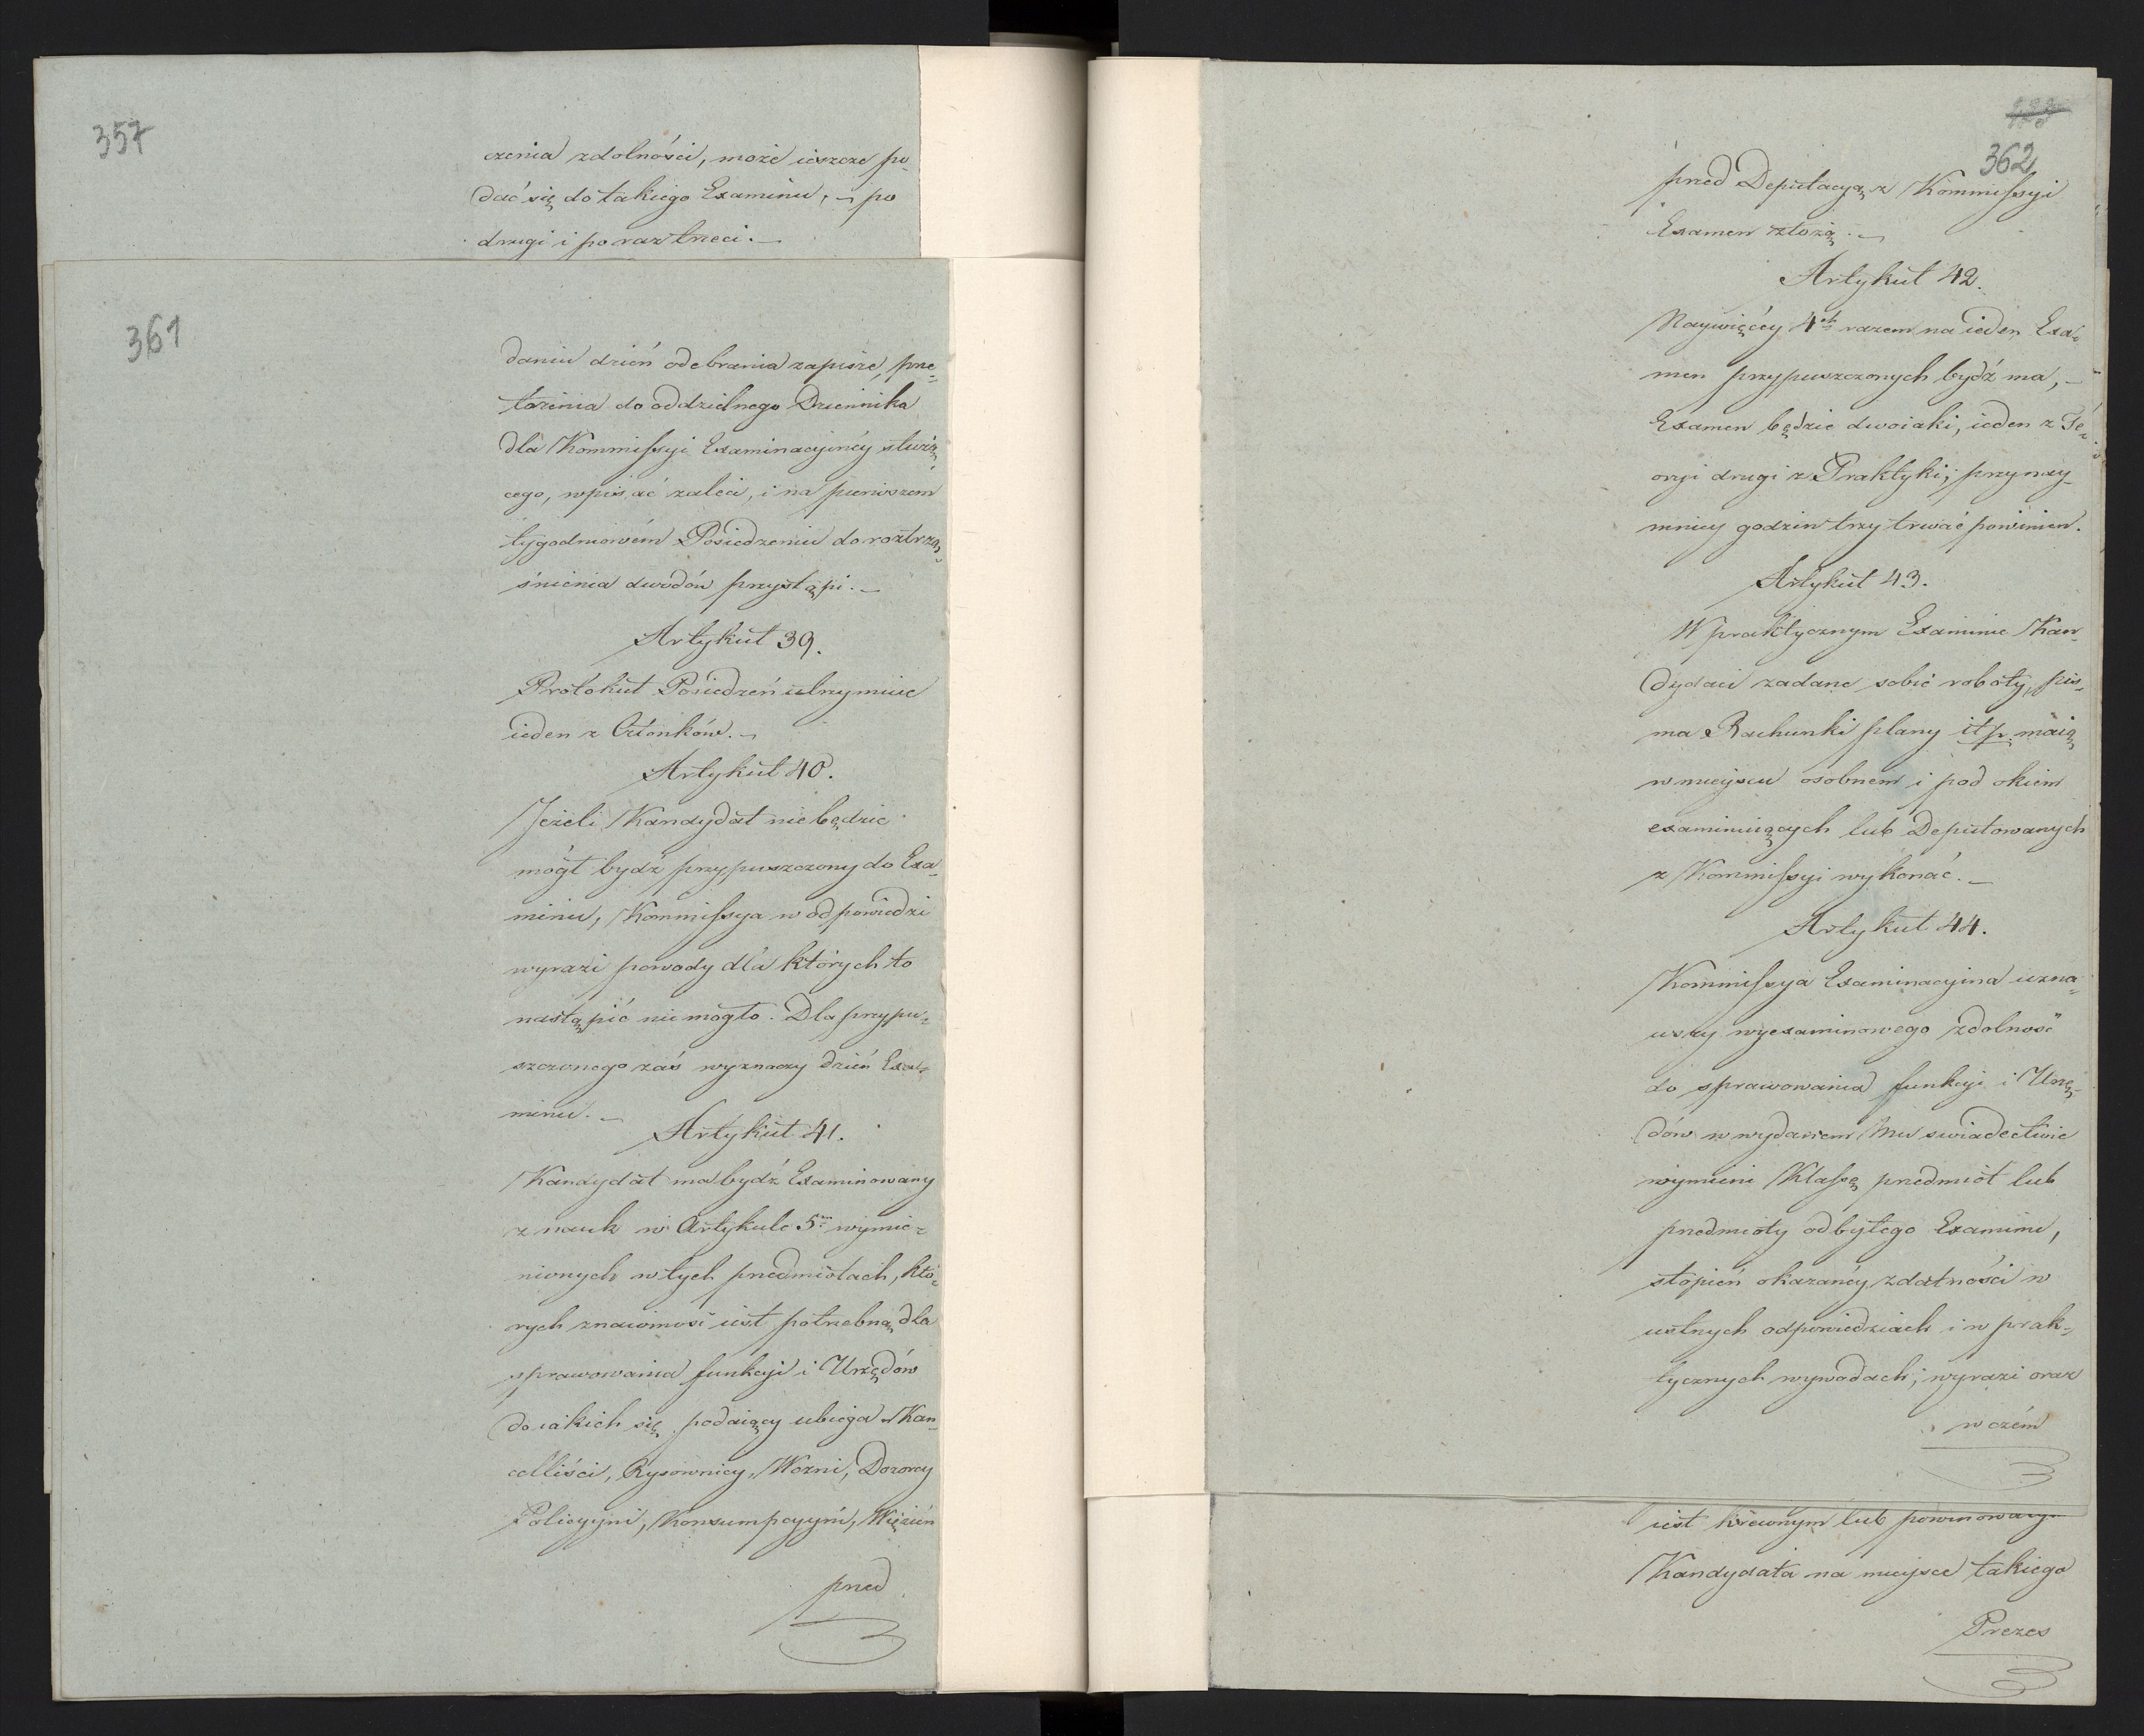 357
czenia zdolności, może ieszcze po-
dać się do takiego Examinu, – po
drugi i po raz trzeci. –
361
daniu dzień odebrania zapisze, prze=
łożenia do oddzielnego Dziennika
dla Kommissyi Examinacyinéy służą=
cego, wpisać zaleci, i na pierwszem
tygodniowém Posiedzeniu do roztrzą=
śnienia dwodów przystąpi. –
Artykuł 39.
Protokuł Posiedzeń utrzymuie
ieden z Członków. –
Artykuł 40.
Jeżeli Kandydat nie będzie
mógł bydź przypuszczony do Exa=
minu, Kommissya w odpowiedzi
wyrazi powody dla których to
nastąpić nie mogło. Dla przypu=
szczonego zaś wyznaczy dzień Exa=
minu. –
Artykuł 41.
Kandydat ma bydź Examinowany
z nauk w Artykule 5m wymie=
nionych w tych przedmiotach, któ=
rych znaiomość iest potrzebną dla
sprawowania funkcyi i Urzędów
do iakich się podaiący ubiega. Kan=
celliści, Rysownicy, Wozni, Dozorcy
Policyyni, Konsumpcyyni, Więzień
przed
362
przed Deputacyą z Kommissyi
Examen złożą. –
Artykuł 42.
Naywięcéy 4ch razem na ieden Exa=
men przypuszczonych bydź ma, –
Examen będzie dwoiaki, ieden z Te=
oryi drugi z Praktyki; przynay=
mniey godzin trzy trwać powinien.
Artykuł 43.
W praktycznym Examinie Kan=
dydaci zadane sobie roboty, pis=
ma Rachunki plany itp. maią
w mieyscu osobnem i pod okiem
examinuiących lub Deputowanych
z Kommissyi wykonać. –
Artykuł 44.
Kommissya Examinacyina uzna=
wszy wyexaminowego zdolność
do sprawowania funkcyi i Urzę=
dów w wydanem Mu swiadectwie
wymieni Klassę przedmiot lub
przedmioty odbytego Examinu,
stopień okazanéy zdatności w
ustnych odpowiedziach i w prak=
tycznych wywodach; wyrazi oraz
w czém
iest krewnym lub powinowatym
Kandydata na mieysce takiego
Prezes